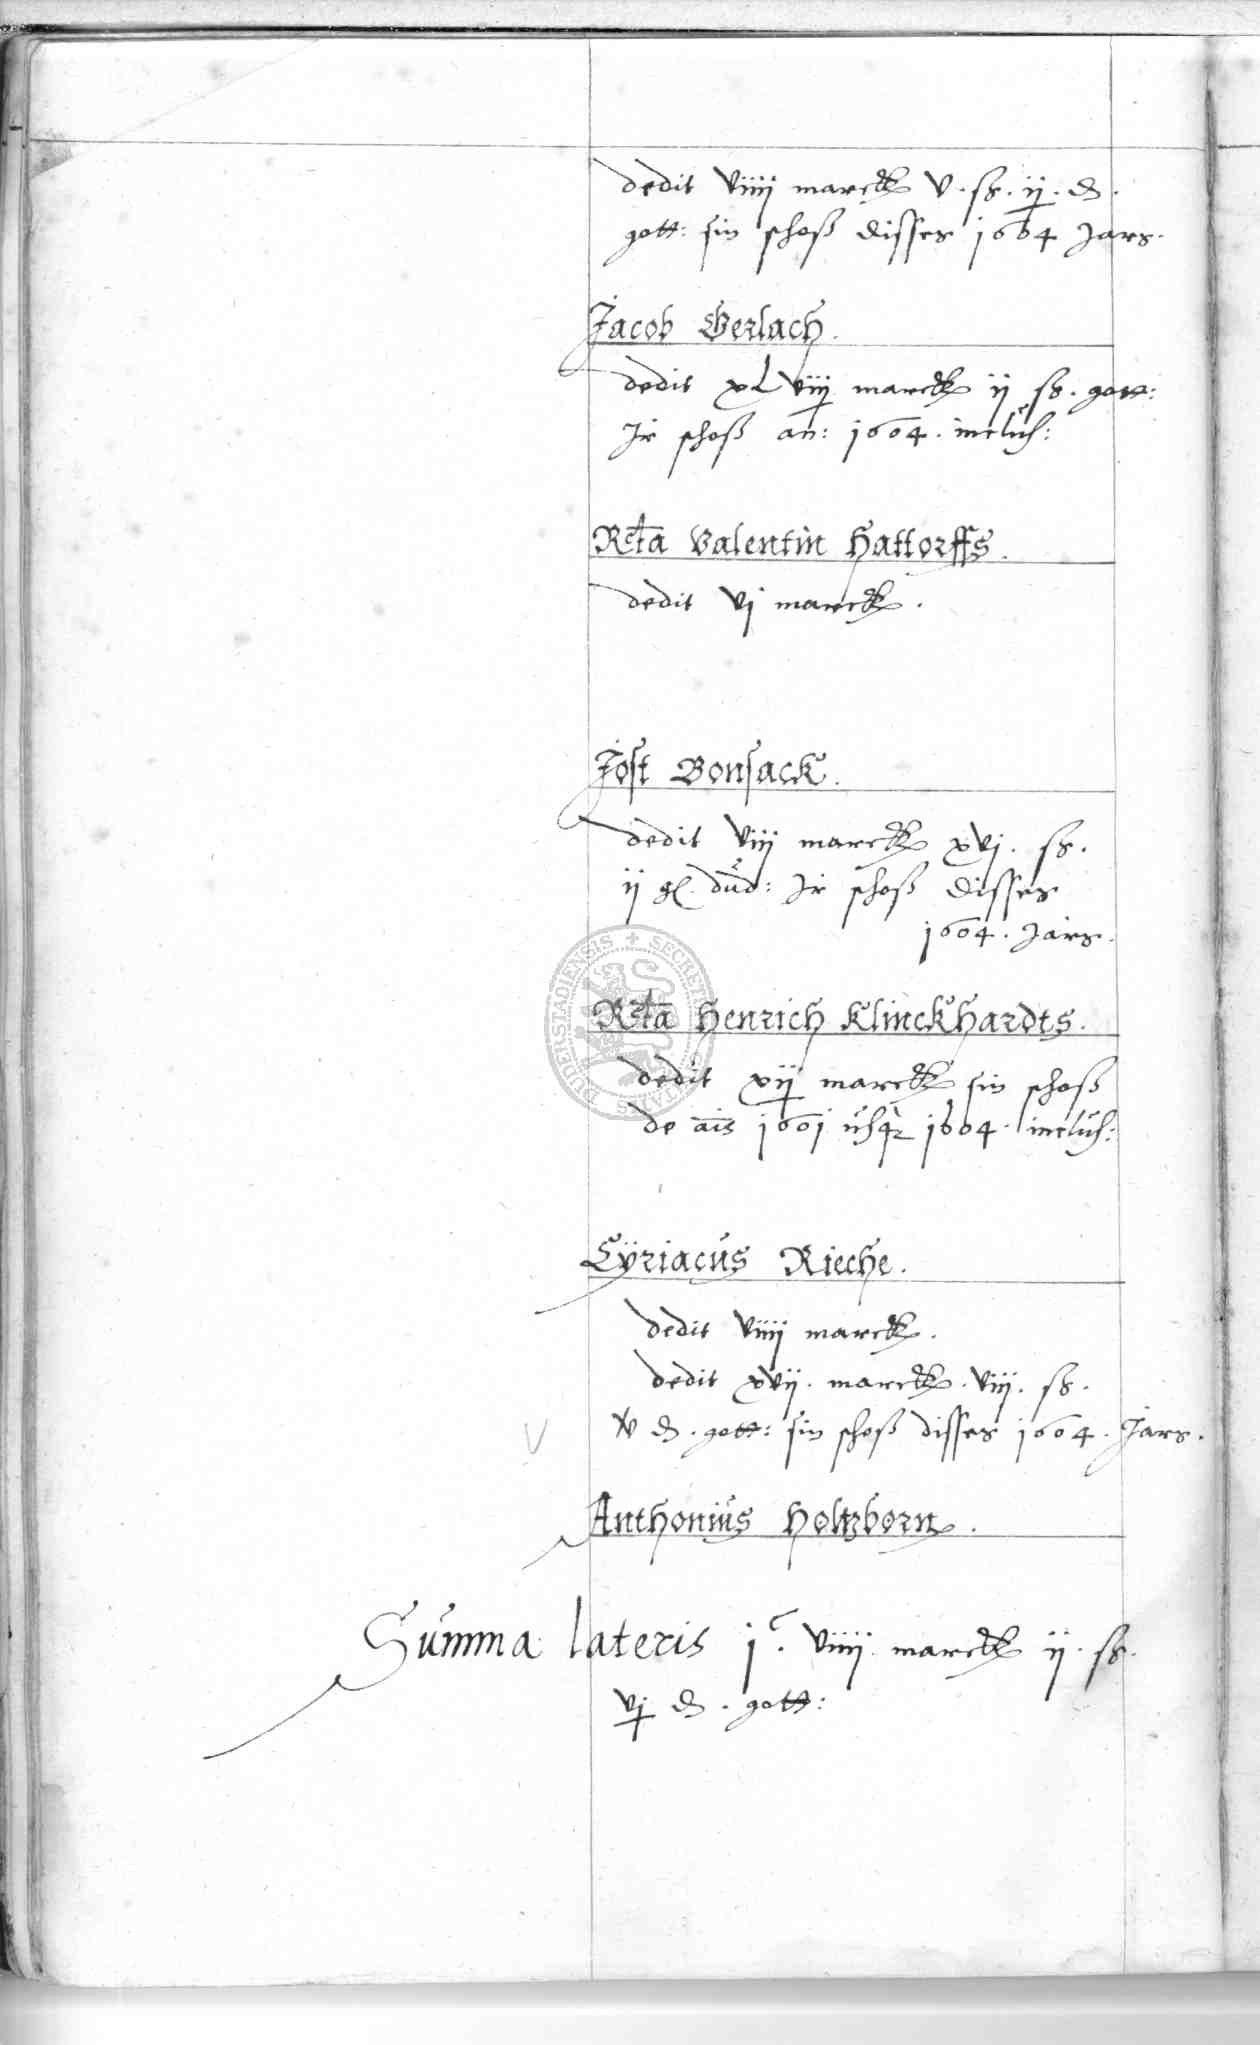 dedit viiij marck v. ß. ij. ₰.
gott: sin schoß disses 1604 Jars.
Jacob Gerlach.
dedit xLviij marck ij ß. gott:
Ir schoß an: 1604. inclus:
Rcta Valentin Hattorffs.
dedit vj marck.
Jost Bonsack.
dedit viij marck xvj. ß.
ij gl. dud: Ir schoß disses
1604. Jars.
Rcta Henrich Klinckhardts.
dedit xij marck sin schoß
de ais 1601 usq 1604. inclus:
Cÿriacus Rieche.
dedit viiij marck.
dedit xvij. marck. viij. ß.
v ₰. gott: sin schoß disses 1604. Jars.
Anthonius Holtzborn.
Summa lateris jc. viiij. marck ij. ß.
vj ₰. gott:
DUDERSTADIENSIS + SECRET TATIS